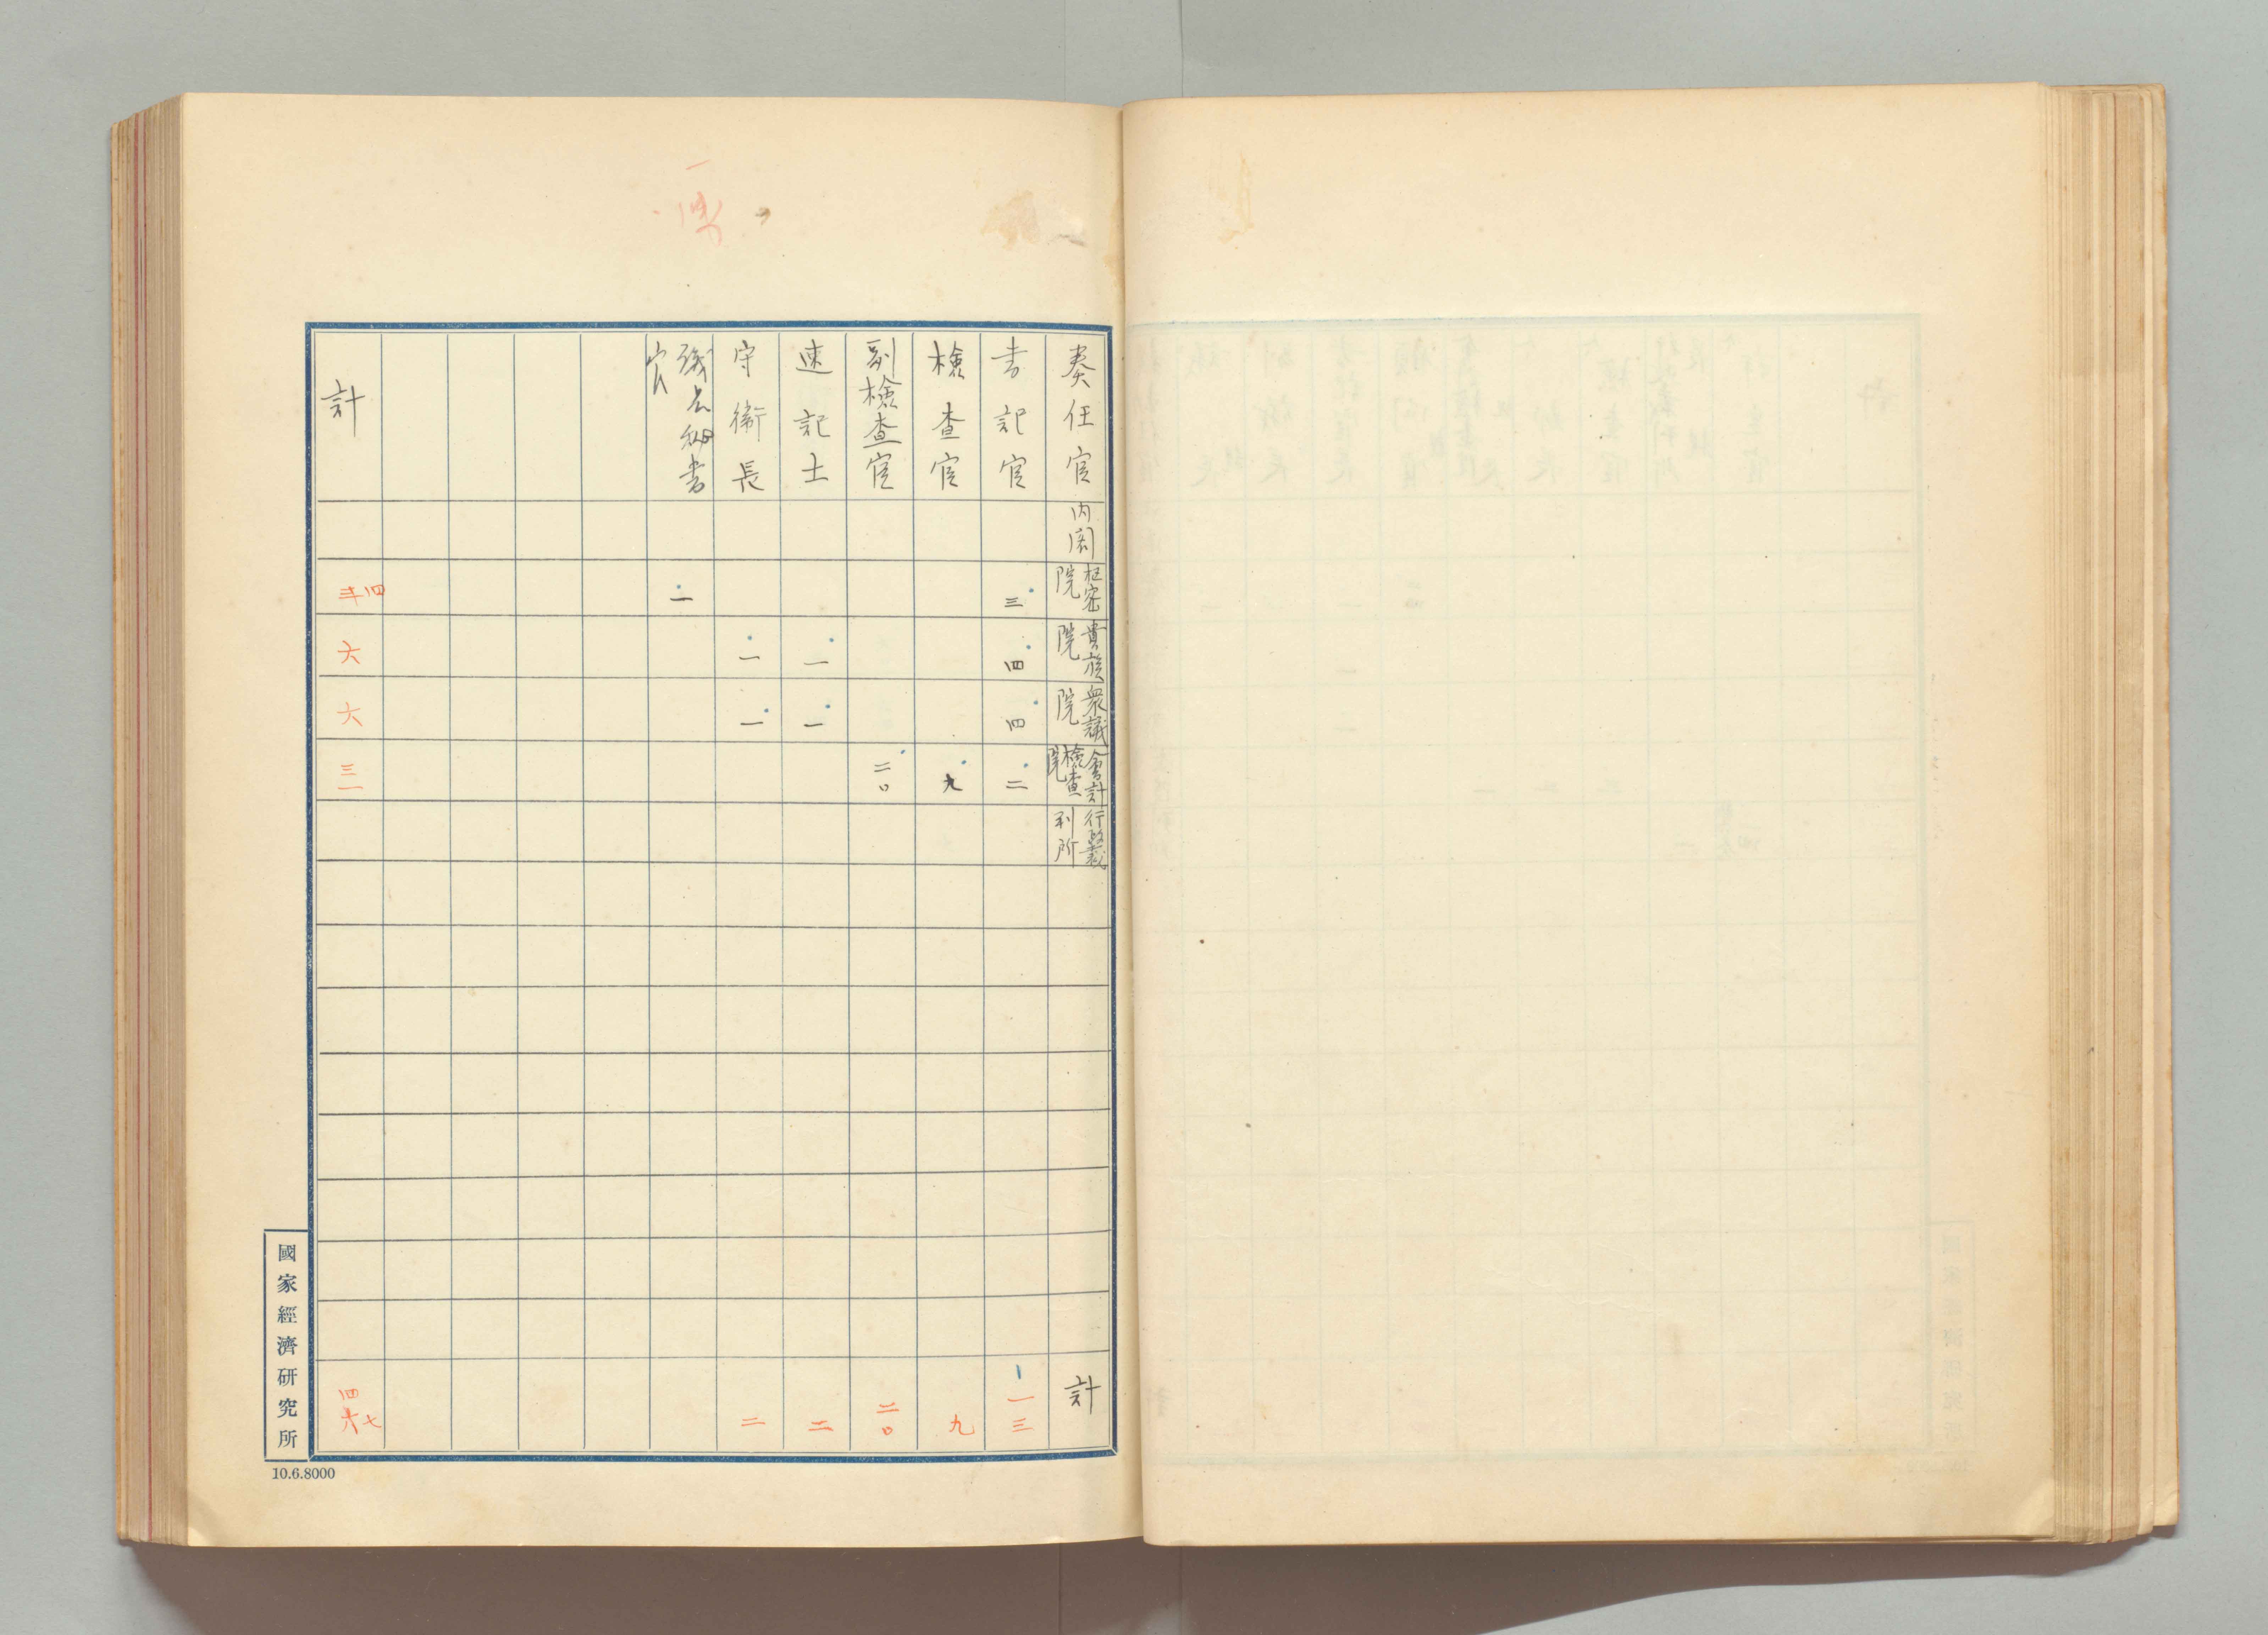 奏任官
内閣
枢密院
貴族院
衆議院
會計検査院
行政裁判所
計
書記官
三
四
四
二
一三
検査官
九
九
副検査官
二〇
二〇
速記士
一
一
二
守衛長
一
一
二
秘書官
一
計
四
六
六
三一
四七
國家經濟研究所
10.6.8000